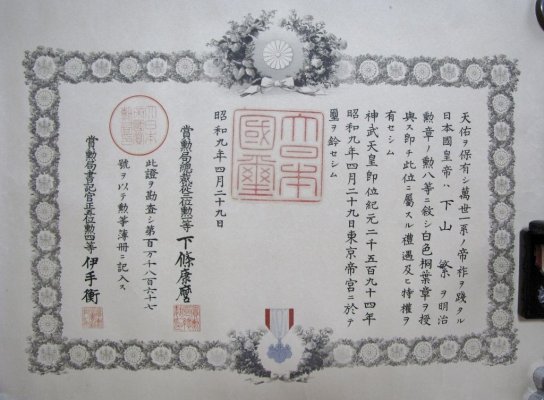 天佑ヲ保有シ萬世一系ノ帝祚ヲ踐タル
日本國皇帝ハ下山 繁ヲ明治
勲章ノ勲八等ニ敍シ白色桐葉章ヲ授
與ス即チ此位ニ屬スル禮遇及ヒ特權ヲ
有セシム
神武天皇即位紀元二千五百九十四年
昭和九年四月二十九日東京帝宮ニ於テ
璽ヲ鈐セシム
大日本國璽
昭和九年四月二十九日
賞勲局總裁從三位勲二等 下條康麿
此證ヲ勘査シ第百八十八百六十七
號ヲ以テ勲等簿冊ニ記入ス
賞勲局書記官正五位勲四等 伊手衡